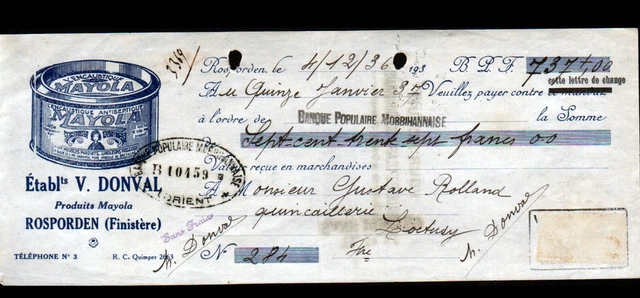 L'ENCAUSTIQUE
MAYOLA
L'ENCAUSTIQUE ANTISEPTIQUE
MAYOLA
3319
Rosporden, le 4/12/36 193 B.P.F. 737+00
Au Quinze Janvier 37 Veuillez payer contre
cette lettre de change
à l'ordre de BANQUE POPULAIRE MORBIHANNAISE la Somme
Sept cent trente sept francs 00
Valeur reçue en marchandises
BANQUE POPULAIRE MORBIHANNAISE
B 10459
LORIENT
A Monsieur Gustave Rolland
quincaillerie
Loctudy
Établts V. DONVAL
Produits Mayola
ROSPORDEN (Finistère)
Sans Frais
V. Donval
V. Donval
N° 284 Fre
TÉLÉPHONE N° 3 R. C. Quimper 2663